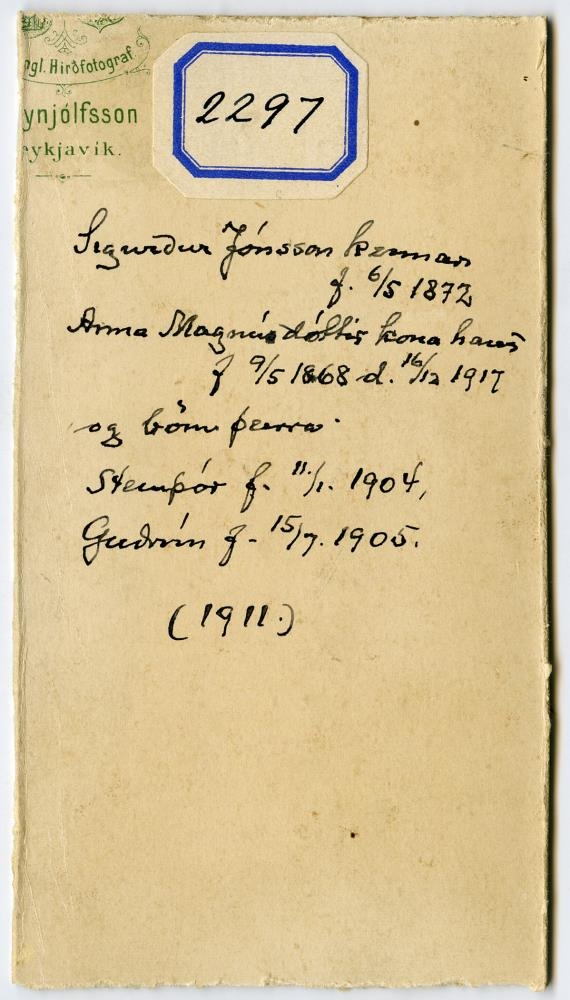 ngl. Hirðfotograf
ynjólfsson
eykjavík.
2297
Sigurður Jónsson kennari
f. 6/5 1872
Anna Magnúsdóttir kona hans
f 9/5 1868 d. 16/12 1917
og börn þeirra.
Steinþór f. 11/1. 1904,
Guðrún f. 15/7. 1905.
(1911.)